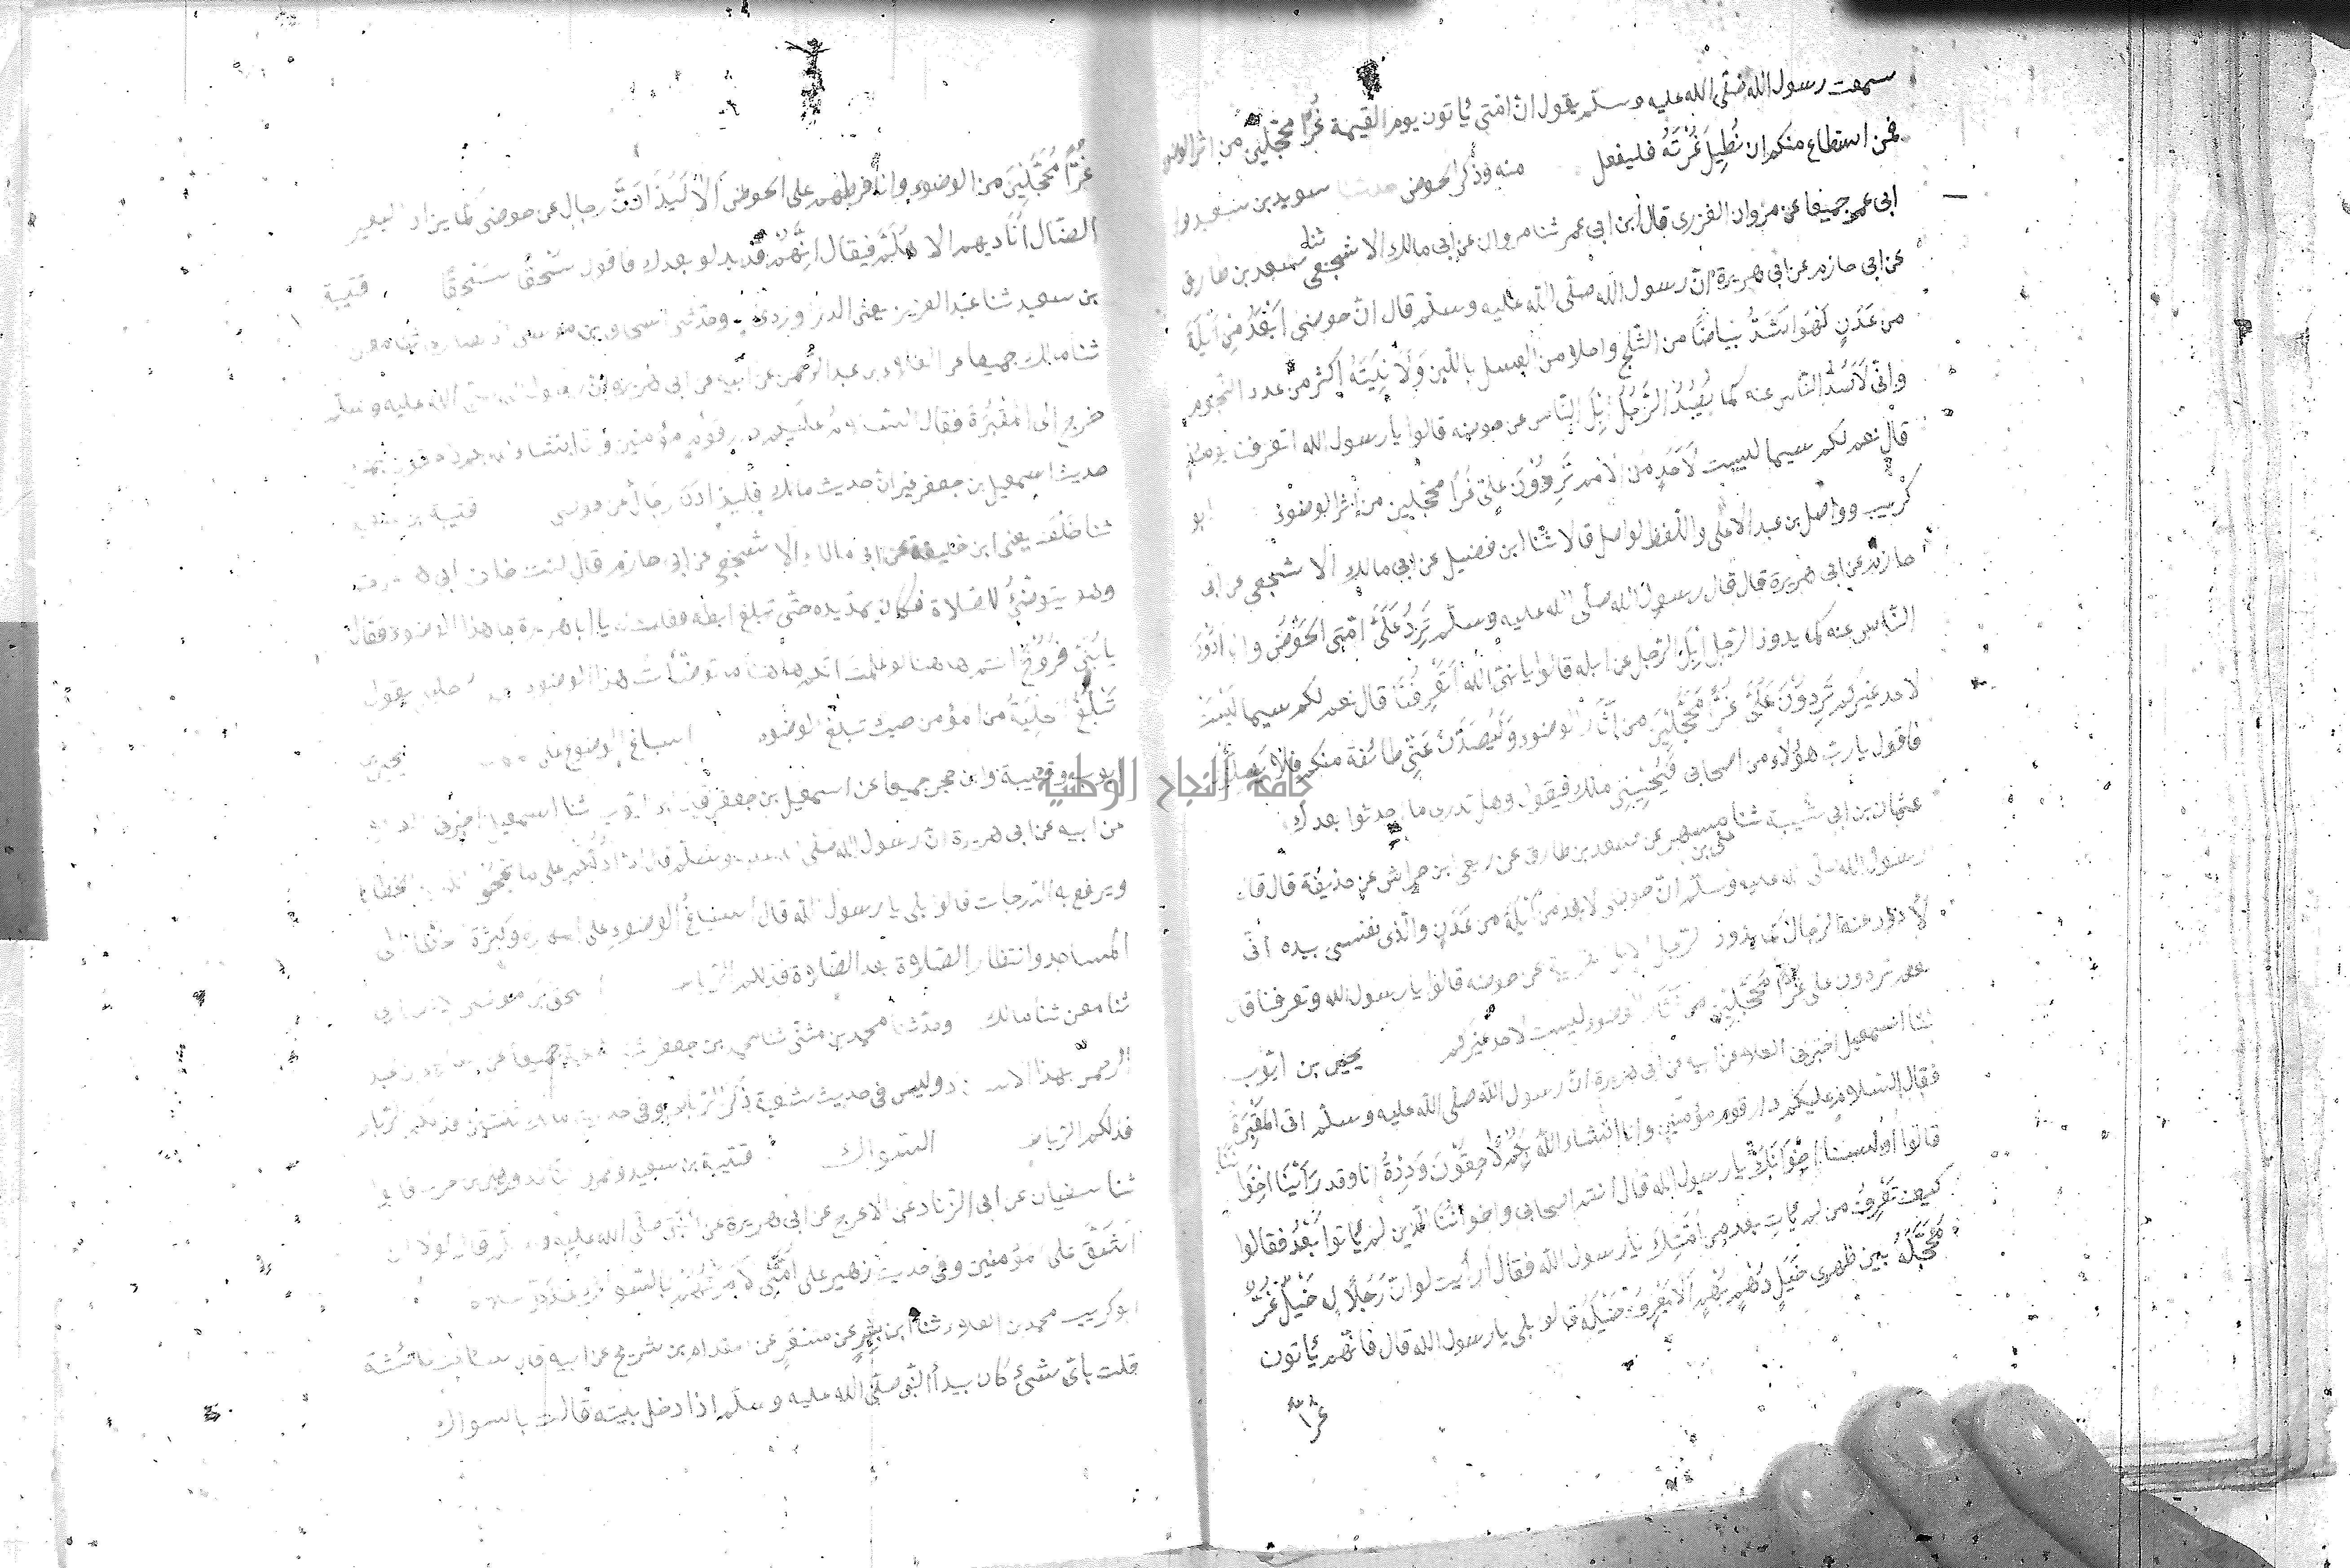 سمعت رسول الله صلى الله عليه وسلم يقول ان امتى يأتون يوم القيمة غرا محجلين من اثر الوضوء
فمن استطاع منكم ان يطيل غرته فليفعل منه وذكر الحوض حدثنا سويد بن سعيد وا
ابى عمر جميعا عن مروان الفزرى قال ابن ابى عمر ثنا مروان عن ابى مالك الاشجعى سعد بن طارق
عن ابى حازم عن ابى هريرة ان رسول الله صلى الله عليه وسلم قال ان حوضى ابعد من ايلة
من عدن لهو اشد بياضا من الثلج واحلا من العسل باللبن ولآنيته اكثر من عدد النجوم
وانى لاصد الناس عنه كما يصد الرجل ابل الناس عن حوضه قالوا يا رسول الله اتعرفنا يومئذ
قال نعم لكم سيما ليست لاحد من الامم تردون على غرا محجلين من اثر الوضوء ابو
كريب وواصل بن عبد الاعلى واللفظ لواصل قالا ثنا ابن فضيل عن ابى مالك الاشجعى عن ابى
حازم عن ابى هريرة قال قال رسول الله صلى الله عليه وسلم ترد على امتى الحوض وانا اذود
الناس عنه كما يذود الرجل ابل الرجل عن ابله قالوا يا نبى الله اتعرفنا قال نعم لكم سيما ليست
لاحد غيركم تردون على غرا محجلين من آثار الوضوء وليصدن عنى طائفة منكم فلا يصلون
فاقول يا رب هؤلاء من اصحابى فيجيبنى ملك فيقول وهل تدرى ما احدثوا بعدك
عثمان بن ابى شيبة ثنا على بن مسهر عن سعد بن طارق عن ربعى ابن حراش عن حذيفة قال قال
رسول الله صلى الله عليه وسلم ان حوضى لابعد من ايلة من عدن والذى نفسى بيده انى
لاذود عنه الرجال كما يذود الرجل الابل الغريبة عن حوضه قالوا يا رسول الله وتعرفنا قال
نعم تردون على غرا محجلين من آثار الوضوء ليست لاحد غيركم يحيى بن ايوب
ثنا اسمعيل اخبرنى العلاء عن ابيه عن ابى هريرة ان رسول الله صلى الله عليه وسلم اتى المقبرة
فقال السلام عليكم دار قوم مؤمنين وانا انشاء الله بكم لاحقون وددت انا وقد رأينا اخواننا
قالوا اولسنا اخوانك يا رسول الله قال انتم اصحابى واخواننا الذين لم يأتوا بعد فقالوا
كيف تعرف من لم يأت بعد من امتك يا رسول الله فقال ارأيت لو ان رجلا له خيل غر
محجلة بين ظهرى خيل دهم بهم الا يعرف خيله قالو بلى يا رسول الله قال فانهم يأتون
غرا
غرا محجلين من الوضوء وانا فرطهم على الحوض الا ليذادن رجال عن حوضى كما يزاد البعير
الضال اناديهم الا هلم فيقال انهم قد بدلو بعدك فاقول سحقا سحقا قتيبة
بن سعيد ثنا عبد العزيز يعنى الدراوردى وحدثنى اسحاق بن موسى الانصارى ثنا معن
ثنا مالك جميعا عن العلاء بن عبد الرحمن عن ابيه عن ابى هريرة ان رسول الله صلى الله عليه وسلم
خرج الى المقبرة فقال السلام عليكم دار قوم مؤمنين وانا انشاء الله بكم لاحقون بمثل
حديث اسمعيل بن جعفر غير ان حديث مالك فليذادن رجال عن حوضى قتيبة بن سعيد
ثنا خلف يعنى ابن خليفة عن ابى مالك الاشجعى عن ابى حازم قال كنت خلف ابى هريرة
وهو يتوضئ للصلاة فكان يمد يده حتى تبلغ ابطه فقلت له يا ابا هريرة ما هذا الوضوء فقال
يا بنى فروخ انتم هاهنا لو علمت انكم هاهنا ما توضأت هذا الوضوء سمعت خليلى يقول
تبلغ الحلية من المؤمن حيث تبلغ الوضوء اسباغ الوضوء على يحيى
ايوب وقتيبة وابن حجر جميعا عن اسمعيل بن جعفر قال ابن ايوب ثنا اسمعيل اخبرنى العلاء
عن ابيه عن ابى هريرة ان رسول الله صلى الله عليه وسلم قال الا ادلكم على ما يمحو الله به الخطايا
ويرفع به الدرجات قالو بلى يا رسول الله قال اسباغ الوضوء على المكاره وكثرة الخطا الى
المساجد وانتظار الصلاة بعد الصلاة فذلكم الرباط اسحق بن موسى الانصارى
ثنا معن ثنا مالك وحدثنا محمد بن مثنى ثنا محمد بن جعفر ثنا شعبة جميعا عن العلاء بن عبد
الرحمن بهذا الاسناد وليس فى حديث شعبة ذكر الرباط وفى حديث مالك ثنتين فذلكم الرباط
فذلكم الرباط السواك قتيبة بن سعيد وعمرو الناقد وزهير بن حرب قالوا
ثنا سفيان عن ابى الزناد عن الاعرج عن ابى هريرة عن النبى صلى الله عليه وسلم قال لولا ان
اشق على المؤمنين وفى حديث زهير على امتى لامرتهم بالسواك عند كل صلاة
ابو كريب محمد بن العلاء ثنا ابن بشر عن مسعر عن المقدام بن شريح عن ابيه قال سألت عائشة
قلت باى شىء كان يبدأ النبى صلى الله عليه وسلم اذا دخل بيته قالت بالسواك
جامعة النجاح الوطنية